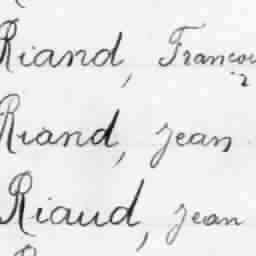 Riand, Franço
Riand, Jean
Riaud, Jean